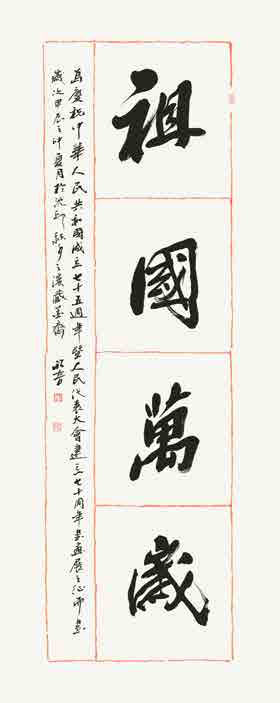 祖國萬歲
為慶祝中華人民共和國成立七十五週年暨人民代表大會建立七十周年書畫展之征而書
歲次甲辰之仲夏月於沈